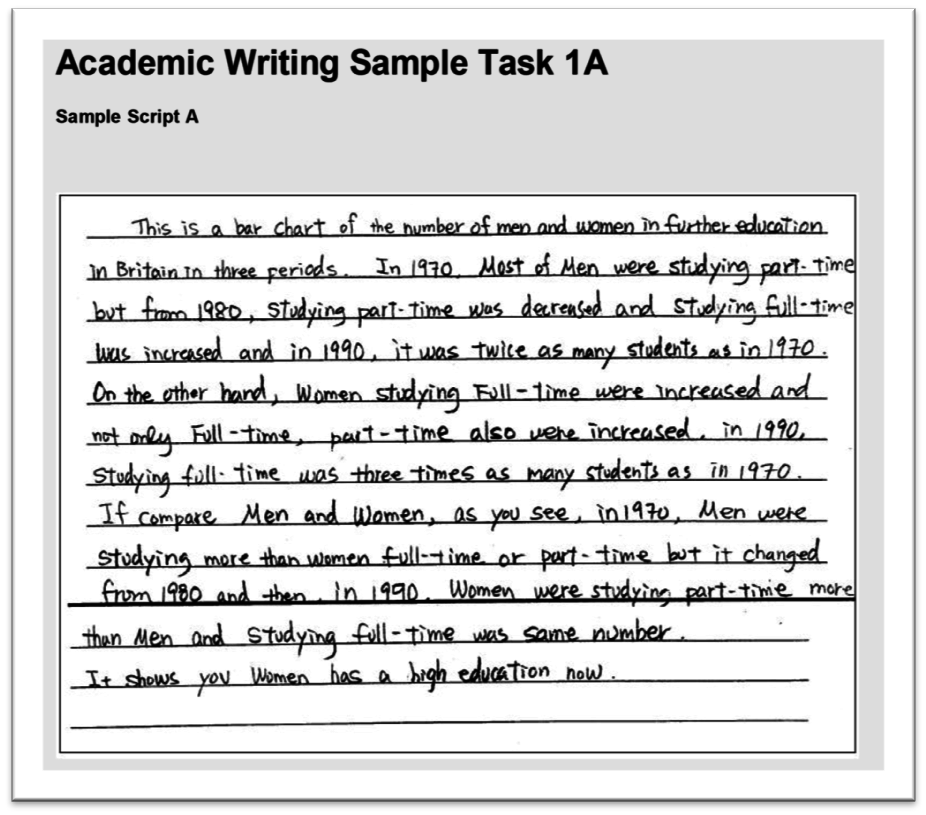 Academic Writing Sample Task 1A
Sample Script A
This is a bar chart of the number of men and women in further education
in Britain in three periods. In 1970, Most of Men were studying part-time
but from 1980, studying part-time was decreased and studying full-time
was increased and in 1990, it was twice as many students as in 1970.
On the other hand, Women studying Full-time were increased and
not only Full-time, part-time also were increased. in 1990,
studying full-time was three times as many students as in 1970.
If compare Men and Women, as you see, in 1970, Men were
studying more than women full-time or part-time but it changed
from 1980 and then, in 1990, Women were studying part-time more
than Men and studying full-time was same number.
It shows you Women has a high education now.